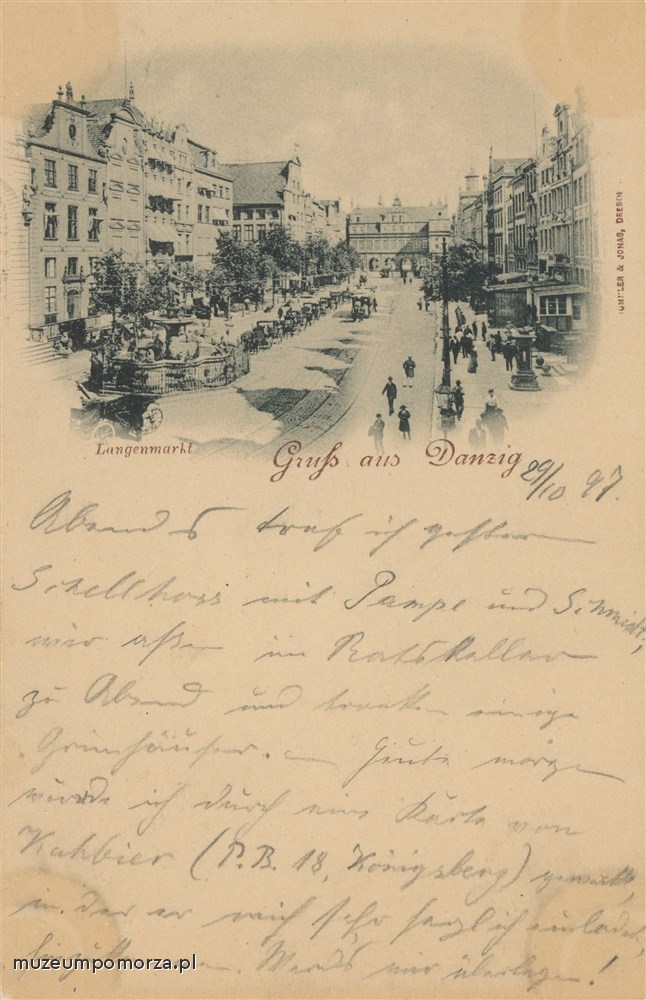 RÖMMLER & JONAS, DRESDEN
Langenmarkt
Gruß aus Danzig
29/10 97.
Abends traf ich gestern
Schellhoss mit Pampe und Schmidt,
wir aßen im Ratskeller
zu Abend und tranken einige
Grünhäuser. Heute morgen
wurde ich durch eine Karte von
Kahbier (P.B. 18, Königsberg) geweckt,
in der er mich sehr einladet,
Werd's mir überlegen!
muzeumpomorza.pl